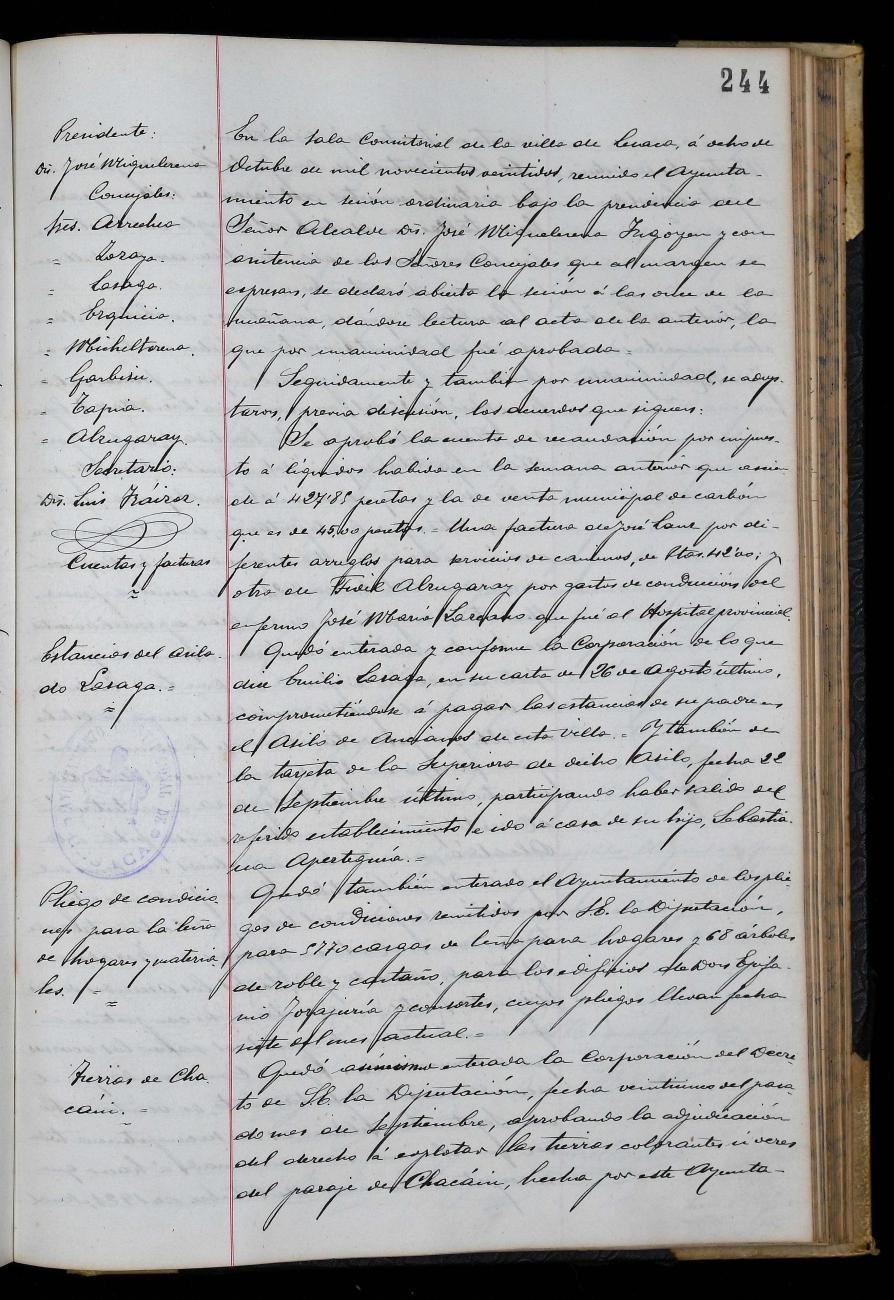 244
Presidente:
Dn. José Miquelerena
Concejales:
Sres. Arrechea
" Zozaya.
" Lasaga.
" Erquicia.
" Michelterena.
" Garbisu.
" Tapia.
" Alzugaray.
Secretario:
Dn. Luis Iráizoz.
En la sala Consistorial de la villa de Lesaca, á ocho de
Octubre de mil novecientos veintidos, reunido el Ayunta-
miento en sesión ordinaria bajo la presidencia del
Señor Alcalde Dn. José Miquelerena Irigoyen y con
asistencia de los Señores Concejales que al margen se
espresan, se declaró abierta la sesión á las once de la
mañana, dándose lectura al acta de la anterior, la
que por unanimidad fué aprobada =
Seguidamente y también por unanimidad, se adop-
taron, previa descusión, los acuerdos que siguen:
Cuentas y facturas
Se aprobó la cuenta de recaudación por impues-
to á líquidos habida en la semana anterior que ascien-
de á 427'85 pesetas y la de venta municipal de carbón
que es de 45,00 pesetas. = Una factura de José Sanz por di-
ferentes arreglos para servicios de caminos, de Ptas. 42'00; y
otra de Fidel Alzugaray por gastos de conducción del
enfermo José María Lazcano que fué al Hospital provincial.
Estancias del asila-
do Lasaga. =
Quedó enterada y conforme la Corporación de lo que
dice Emilio Lasaga, en su carta de 26 de Agosto último,
comprometiéndose á pagar las estancias de su padre en
el Asilo de Ancianos de esta villa. = Y también de
la tarjeta de la Superiora de dicho Asilo, fecha 22
de Septiembre último, participando haber salido del
referido establecimiento e ido á casa de su hijo, Sebastia-
na Aperteguía. =
Pliego de condicio
nes para la leña
de hogares y materia
les. =
Quedó también enterado el Ayuntamiento de los plie-
gos de condiciones remitidos por S.E. la Diputación,
para 5770 cargas de leña para hogares y 68 árboles
de roble y castaño, para los edificios de Don Epifa-
nio Jorajuría y consortes, cuyos pliegos llevan fecha
siete del mes actual. =
Tierras de Cha
cáin. =
Quedó asimismo enterada la Corporación del Decre-
to de S.E. la Diputación, fecha veintinueve del pasa-
do mes de Septiembre, aprobando la adjudicación
del derecho á explotar las tierras colorantes ú ocres
del paraje de Chacáin, hecha por este Ayunta-